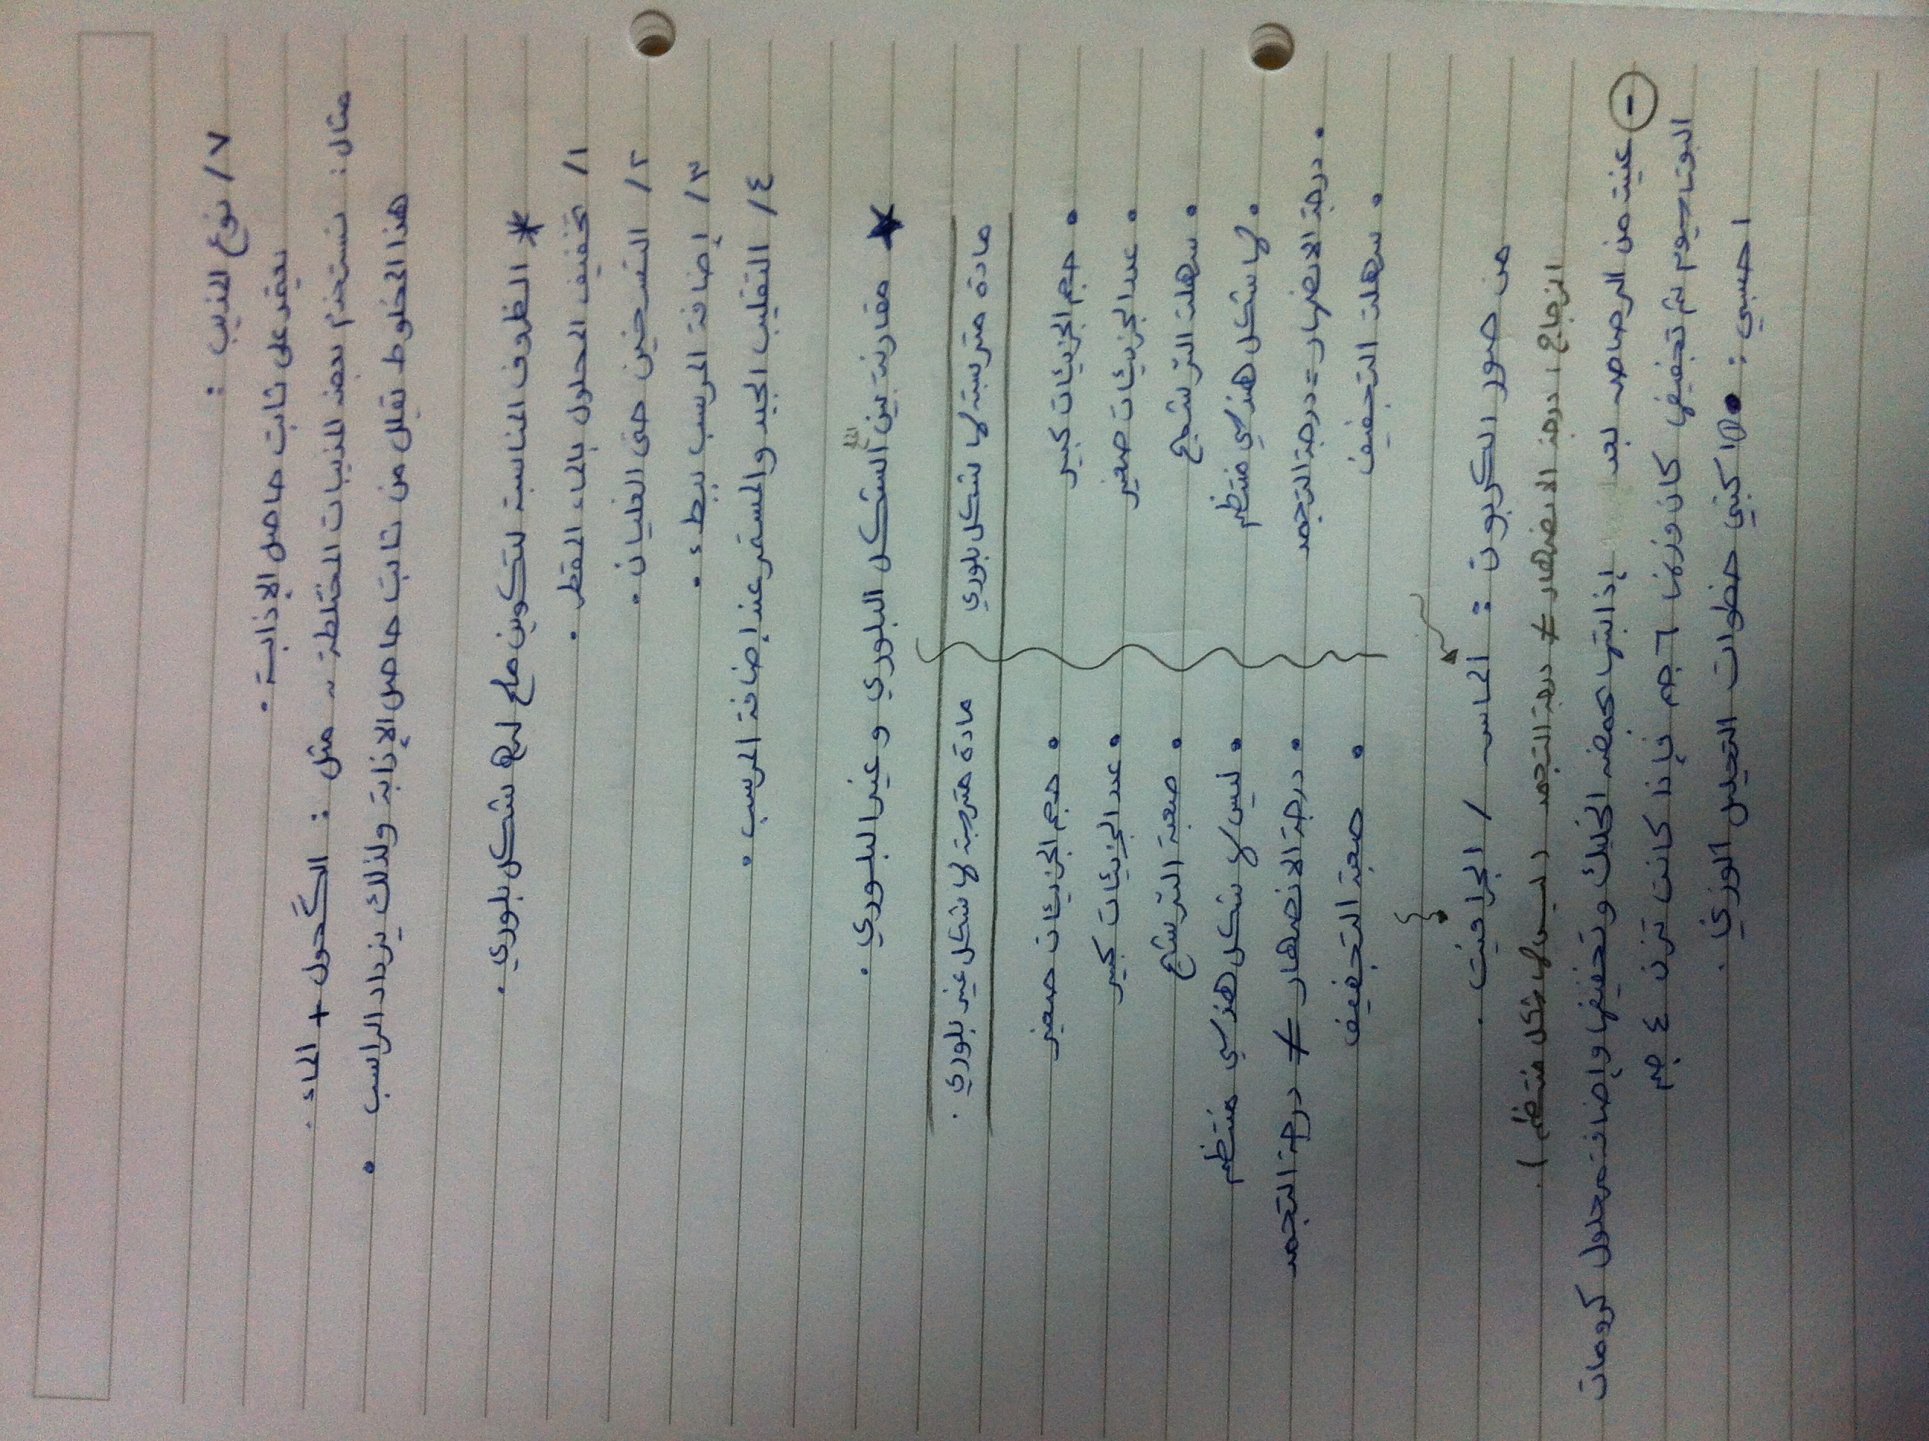 ٧/ نوع المذيب :
يعتمد على ثابت حاصل الإذابة .
مثال : نستخدم بعض المذيبات المختلطة ~ مثل : الكحول + الماء .
هذا المخلوط يقلل من ثابت حاصل الإذابة ولذلك يزداد الراسب .
* الظروف المناسبة لتكوين ملح له شكل بلوري .
١/ تخفيف المحلول بالماء المقطر .
٢/ التسخين حتى الغليان .
٣/ إضافة المرسب ببطء .
٤/ التقليب الجيد والمستمر عند إضافة المرسب .
★ مقارنة بين الشكل البلوري و غير البلوري .
مادة مترسبة لها شكل بلوري
مادة مترسبة لها شكل غير بلوري .
• حجم الجزيئات كبير
• حجم الجزيئات صغير
• عدد الجزيئات صغير
• عدد الجزيئات كبير
• سهلة الترشيح
• صعبة الترشيح
• لها شكل هندسي منتظم
• ليس لها شكل هندسي منتظم
• درجة الانصهار = درجة التجمد
• درجة الانصهار ≠ درجة التجمد
• سهلة التجفيف
• صعبة التجفيف
من صور الكربون : الماس / الجرافيت .
الزجاج ( درجة الانصهار ≠ درجة التجمد ( ليس لها شكل منتظم ) .
- عينة من الرصاص بعد إذابتها بحمض الخليك وتخفيفها وإضافة محلول كرومات
البوتاسيوم ثم تجفيفها كان وزنها ٦ جم فإذا كانت تزن ٤ جم
احسبي : اكتبي خطوات التحليل الوزني .